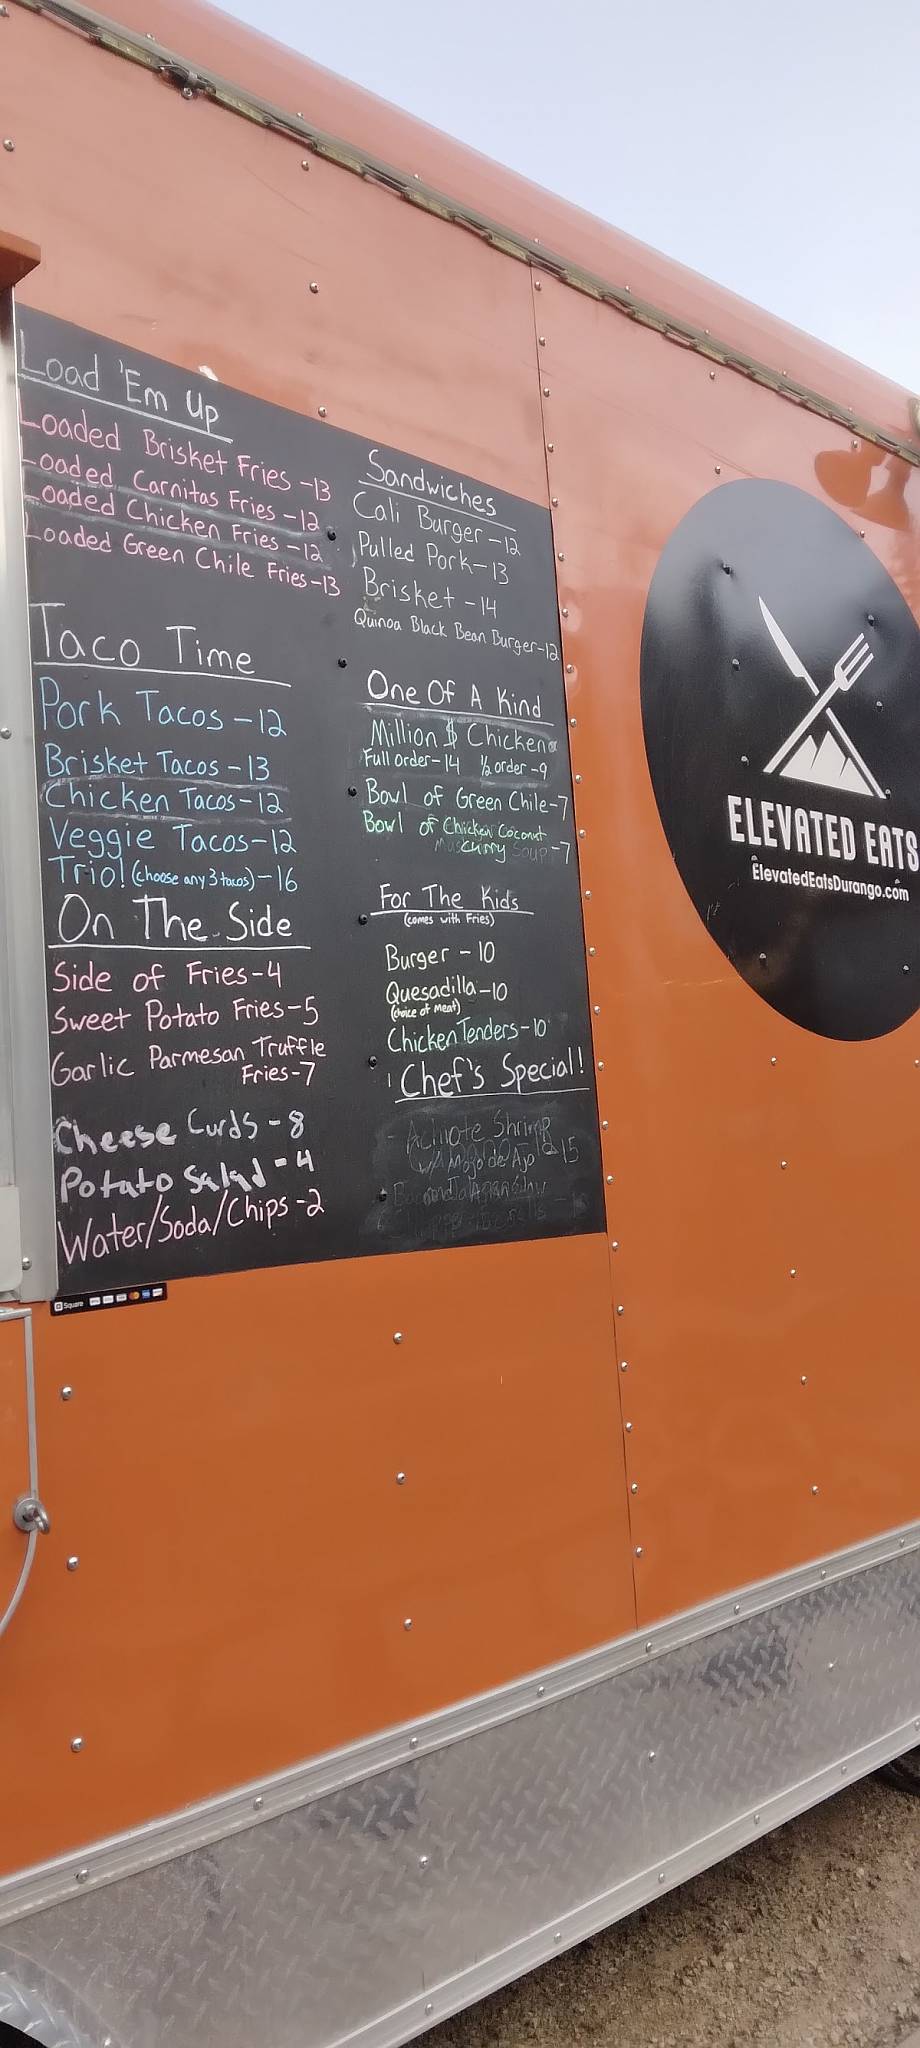 Load 'Em Up
Loaded Brisket Fries - 13
Loaded Carnitas Fries - 12
Loaded Chicken Fries - 12
Loaded Green Chile Fries - 13
Taco Time
Pork Tacos - 12
Brisket Tacos - 13
Chicken Tacos - 12
Veggie Tacos - 12
Trio! (choose any 3 tacos) - 16
On The Side
Side of Fries - 4
Sweet Potato Fries - 5
Garlic Parmesan Truffle
Fries - 7
Cheese Curds - 8
Potato Salad - 4
Water/Soda/Chips - 2
Sandwiches
Cali Burger - 12
Pulled Pork - 13
Brisket - 14
Quinoa Black Bean Burger - 12
One Of A Kind
Million $ Chicken
Full order - 14 ½ order - 9
Bowl of Green Chile - 7
Bowl of Chicken Coconut
Curry Soup - 7
For The Kids
(comes with Fries)
Burger - 10
Quesadilla - 10
(choice of meat)
Chicken Tenders - 10
Chef's Special!
Achiote Shrimp
w/ Mojo de Ajo - 15
Square
ELEVATED EATS
ElevatedEatsDurango.com